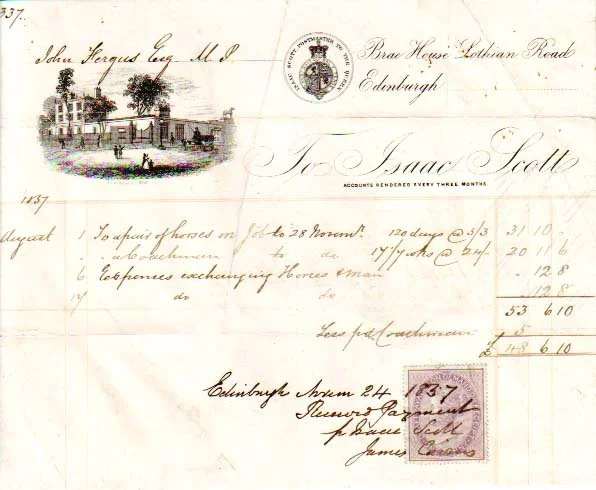 337.
John Fergus Esq M P
ISAAC SCOTT POSTMASTER TO THE QUEEN
Brae House Lothian Road
Edinburgh
To Isaac Scott
ACCOUNTS RENDERED EVERY THREE MONTHS.
1837
August 1 To a pair of horses on Job to 28 Novemr. 120 days @ 5/3 31 10 -
" " a Coachman to do 17 1/7 wks @ 24/- 20 11 6
6 Expenses exchanging Horses & man - 12 8
17 do do - 12 8
53 6 10
Less pd Coachman 5
£ 48 6 10
Edinburgh Novem 24 1837
Received Payment
p Isaac Scott
James